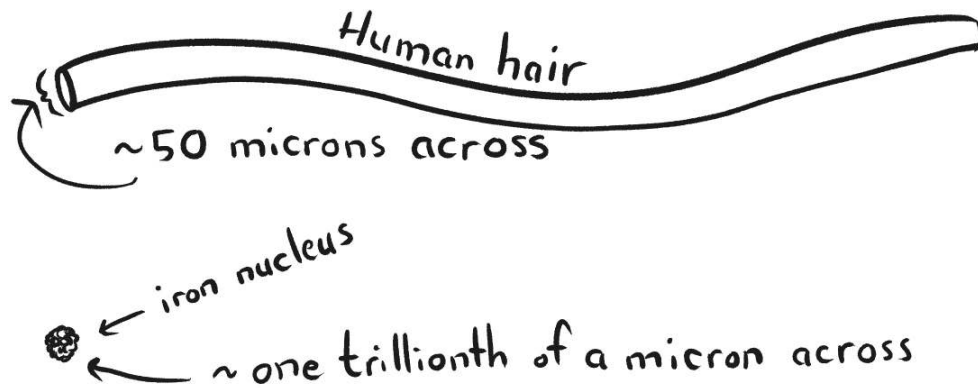 Human hair
~50 microns across
iron nucleus
~one trillionth of a micron across